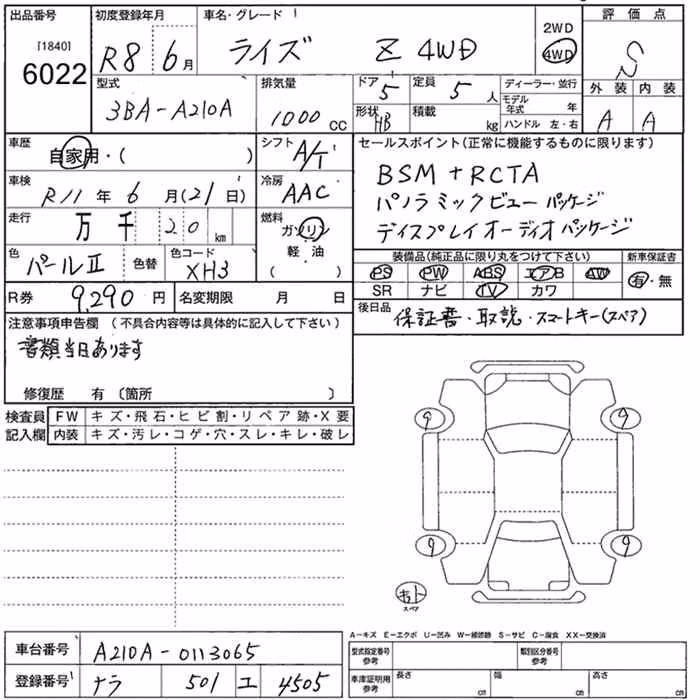 出品番号 初度登録年月 車名・グレード 評価点
[1840] 6022 R8 6月 ライズ Z 4WD 2WD 4WD S
型式 排気量 ドア 5 定員 5人 ディーラー・並行 外装 内装
3BA-A210A 1000 CC 形状 HB 積載 kg モデル年式 年 A A
ハンドル 左・右
車歴 自家用・( ) シフト A/T セールスポイント(正常に機能するものに限ります)
車検 R11年6月(21日) 冷房 AAC BSM+RCTA
パノラミックビューパッケージ
走行 万千20km 燃料 ガソリン 軽・油 ( ) ディスプレイオーディオパッケージ
色 パールⅡ 色替 色コード XH3 装備品(純正品に限り丸をつけて下さい) 新車保証書
PS PW ABS エアB AW 有・無
SR ナビ TV カワ
R券 9,290円 名変期限 月 日 後日品 保証書・取説・スマートキー(スペア)
注意事項申告欄(不具合内容等は具体的に記入して下さい)
書類当日あります
修復歴 有〔箇所 〕
検査員 FW キズ・飛石・ヒビ割・リペア跡・X要
記入欄 内装 キズ・汚レ・コゲ・穴・スレ・キレ・破レ
9 9
9 9
キット
スペア
A-キズ E-エクボ U-凹み W-補修跡 S-サビ C-腐食 XX-交換済
車台番号 A210A-0113065 型式指定番号 参考 類別区分番号 参考
登録番号 ナラ 501 エ 4505 車庫証明用 参考 長さ cm 幅 cm 高さ cm